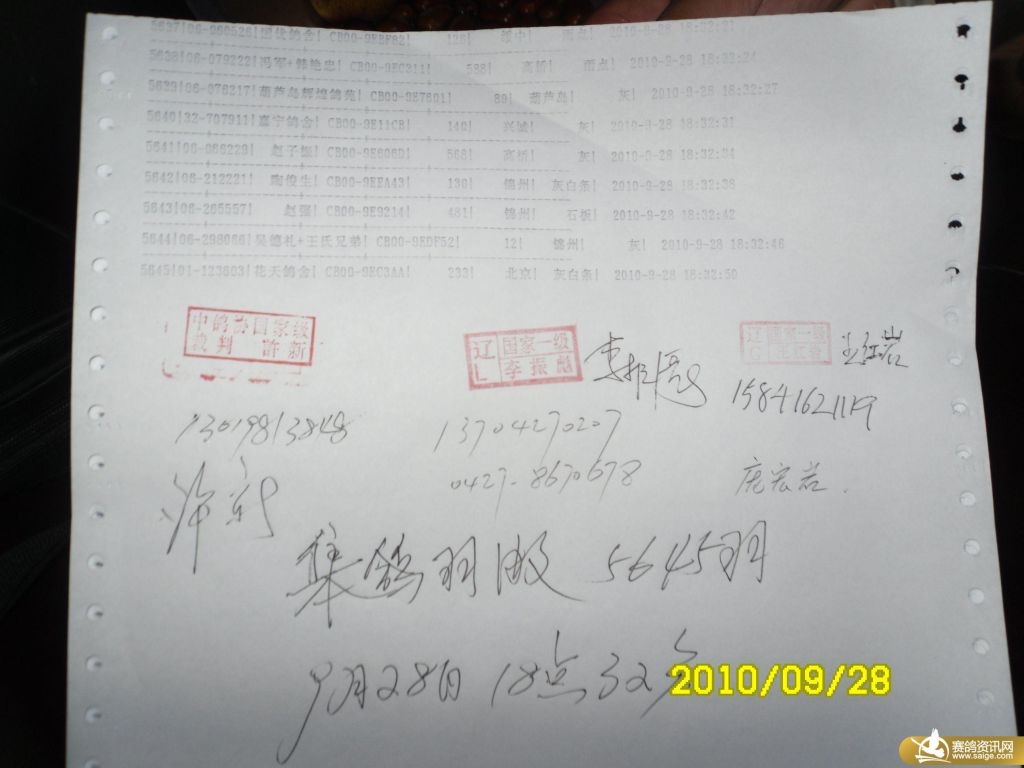 5637|06-090526|国伏鸽舍| CB00-9EBF82| 126| 绥中| 雨点| 2010-9-28 18:32:21
5638|06-079222|冯军+韩艳忠| CB00-9EC311| 588| 高桥| 雨点| 2010-9-28 18:32:24
5639|06-078217|葫芦岛辉煌鸽苑| CB00-9E7801| 80| 葫芦岛| 灰| 2010-9-28 18:32:27
5640|32-707911|嘉宇鸽舍| CB00-9E11CB| 140| 兴城| 灰| 2010-9-28 18:32:31
5641|06-086229| 赵子振| CB00-9E606D| 568| 高桥| 灰| 2010-9-28 18:32:34
5642|06-212221| 陶俊生| CB00-9EEA43| 130| 锦州| 灰白条| 2010-9-28 18:32:38
5643|06-265557| 赵强| CB00-9E9214| 481| 锦州| 石板| 2010-9-28 18:32:42
5644|06-298066|吴德礼+王氏兄弟| CB00-9EDF52| 12| 锦州| 灰| 2010-9-28 18:32:46
5645|01-123603|花天鸽舍| CB00-9EC3AA| 233| 北京| 灰白条| 2010-9-28 18:32:50
中鸽协国家级
裁判 许新
辽L 国家一级
李振彪
李振彪
辽G 国家一级
13019813848
13704270207
15841621119
0427-8670678
许新
庞宏岩.
集鸽羽数 5645羽
9月28日 18点32分
2010/09/28
赛鸽资讯网
www.saige.com